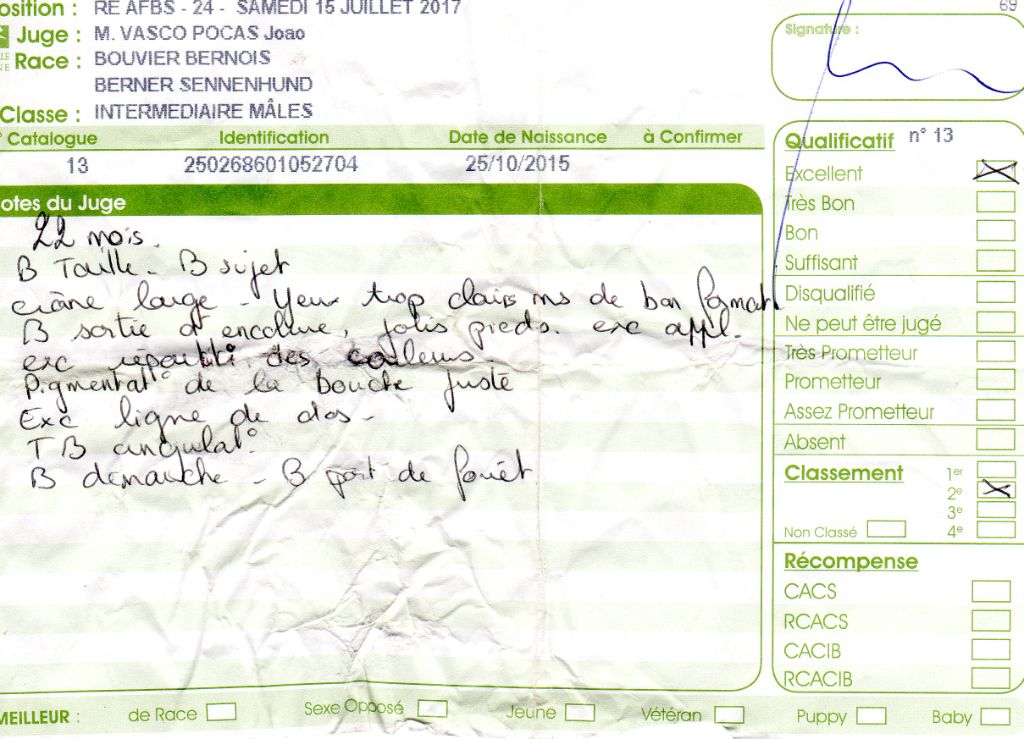 osition : RE AFBS - 24 - SAMEDI 15 JUILLET 2017
69
Juge : M. VASCO POCAS Joao
Signature :
Race : BOUVIER BERNOIS
BERNER SENNENHUND
Classe : INTERMEDIAIRE MÂLES
° Catalogue Identification Date de Naissance à Confirmer
13 250268601052704 25/10/2015
Qualificatif n° 13
Excellent
Très Bon
Bon
Suffisant
Disqualifié
Ne peut être jugé
Très Prometteur
Prometteur
Assez Prometteur
Absent
otes du Juge
22 mois.
B Taille - B sujet
crâne large - Yeux trop clairs ms de bon format
B sortie d'encolure, jolis pieds. exc appl.
exc repartiti des couleurs.
Pigmentat° de la bouche juste
Exc ligne de dos -
TB angulat°
B démarche - B port de fouet
Classement 1er
2e
3e
Non Classé 4e
Récompense
CACS
RCACS
CACIB
RCACIB
MEILLEUR : de Race Sexe Opposé Jeune Vétéran Puppy Baby